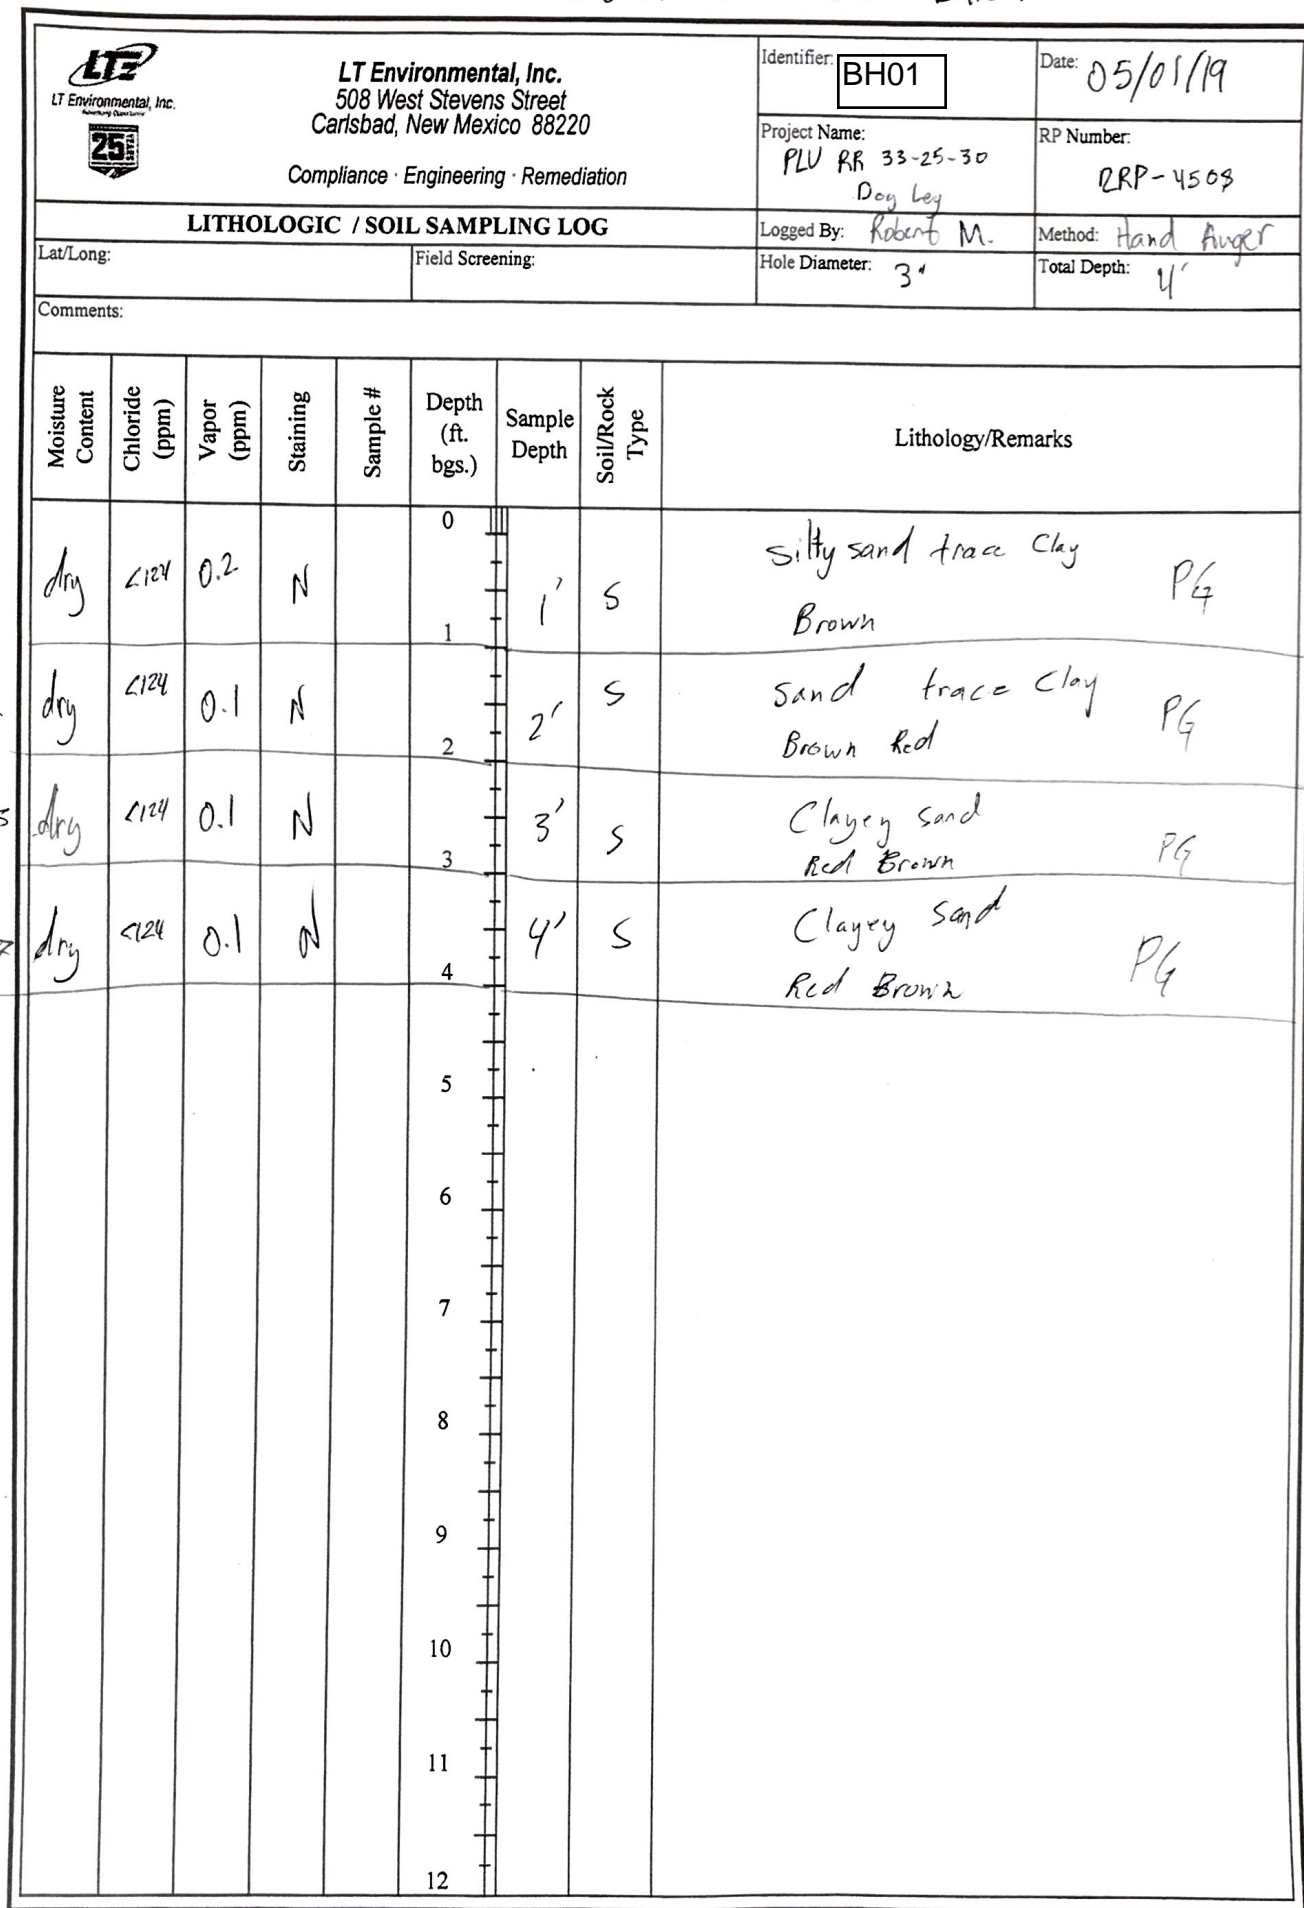 LTE
LT Environmental, Inc.
25
LT Environmental, Inc.
508 West Stevens Street
Carlsbad, New Mexico 88220
Compliance · Engineering · Remediation
Identifier: BH01
Date: 05/01/19
Project Name:
PLU RR 33-25-30
Dog Leg
RP Number:
2RP-4508
LITHOLOGIC / SOIL SAMPLING LOG
Logged By: Robert M.
Method: Hand Auger
Lat/Long:
Field Screening:
Hole Diameter: 3"
Total Depth: 4'
Comments:
Moisture Content
Chloride (ppm)
Vapor (ppm)
Staining
Sample #
Depth (ft. bgs.)
Sample Depth
Soil/Rock Type
Lithology/Remarks
0
dry <124 0.2 N 1' S silty sand trace Clay PG
1 Brown
dry <124 0.1 N 2' S sand trace Clay PG
2 Brown Red
dry <124 0.1 N 3' S Clayey sand PG
3 Red Brown
dry <124 0.1 N 4' S Clayey sand PG
4 Red Brown
5
6
7
8
9
10
11
12